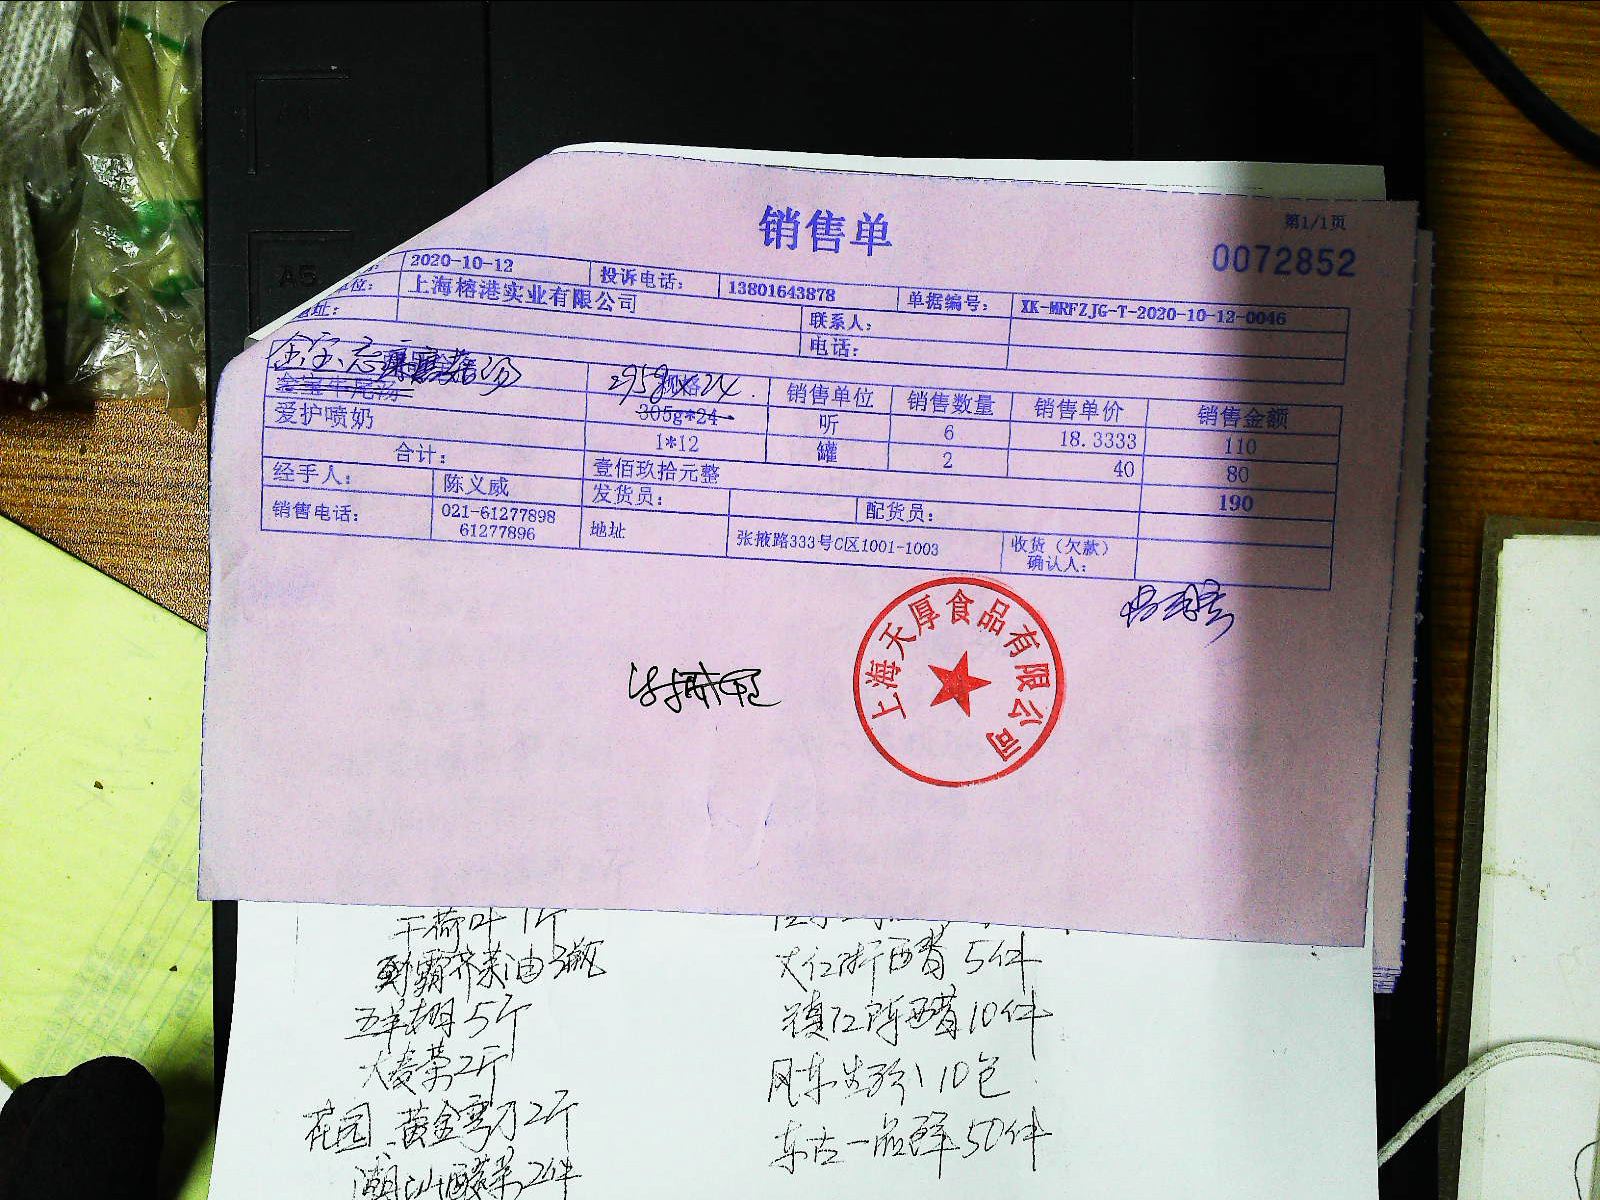 第1/1页
销售单
0072852
2020-10-12 投诉电话: 13801643878 单据编号: XK-MRFZJG-T-2020-10-12-0046
单位: 上海榕港实业有限公司 联系人:
地址: 电话:
295g×24 规格 销售单位 销售数量 销售单价 销售金额
金宝牛尾汤 305g*24 听 6 18.3333 110
爱护喷奶 1*12 罐 2 40 80
合计: 壹佰玖拾元整 190
经手人: 陈义威 发货员: 配货员:
销售电话: 021-61277898 61277896 地址 张掖路333号C区1001-1003 收货(欠款)确认人:
上海天厚食品有限公司
干荷叶1斤
芥菜油3瓶
5件
5斤
镇江陈醋10件
大麦茶2斤
风车生粉10包
花园 黄金弯刀2斤
东古一品鲜50件
潮汕酸菜2件